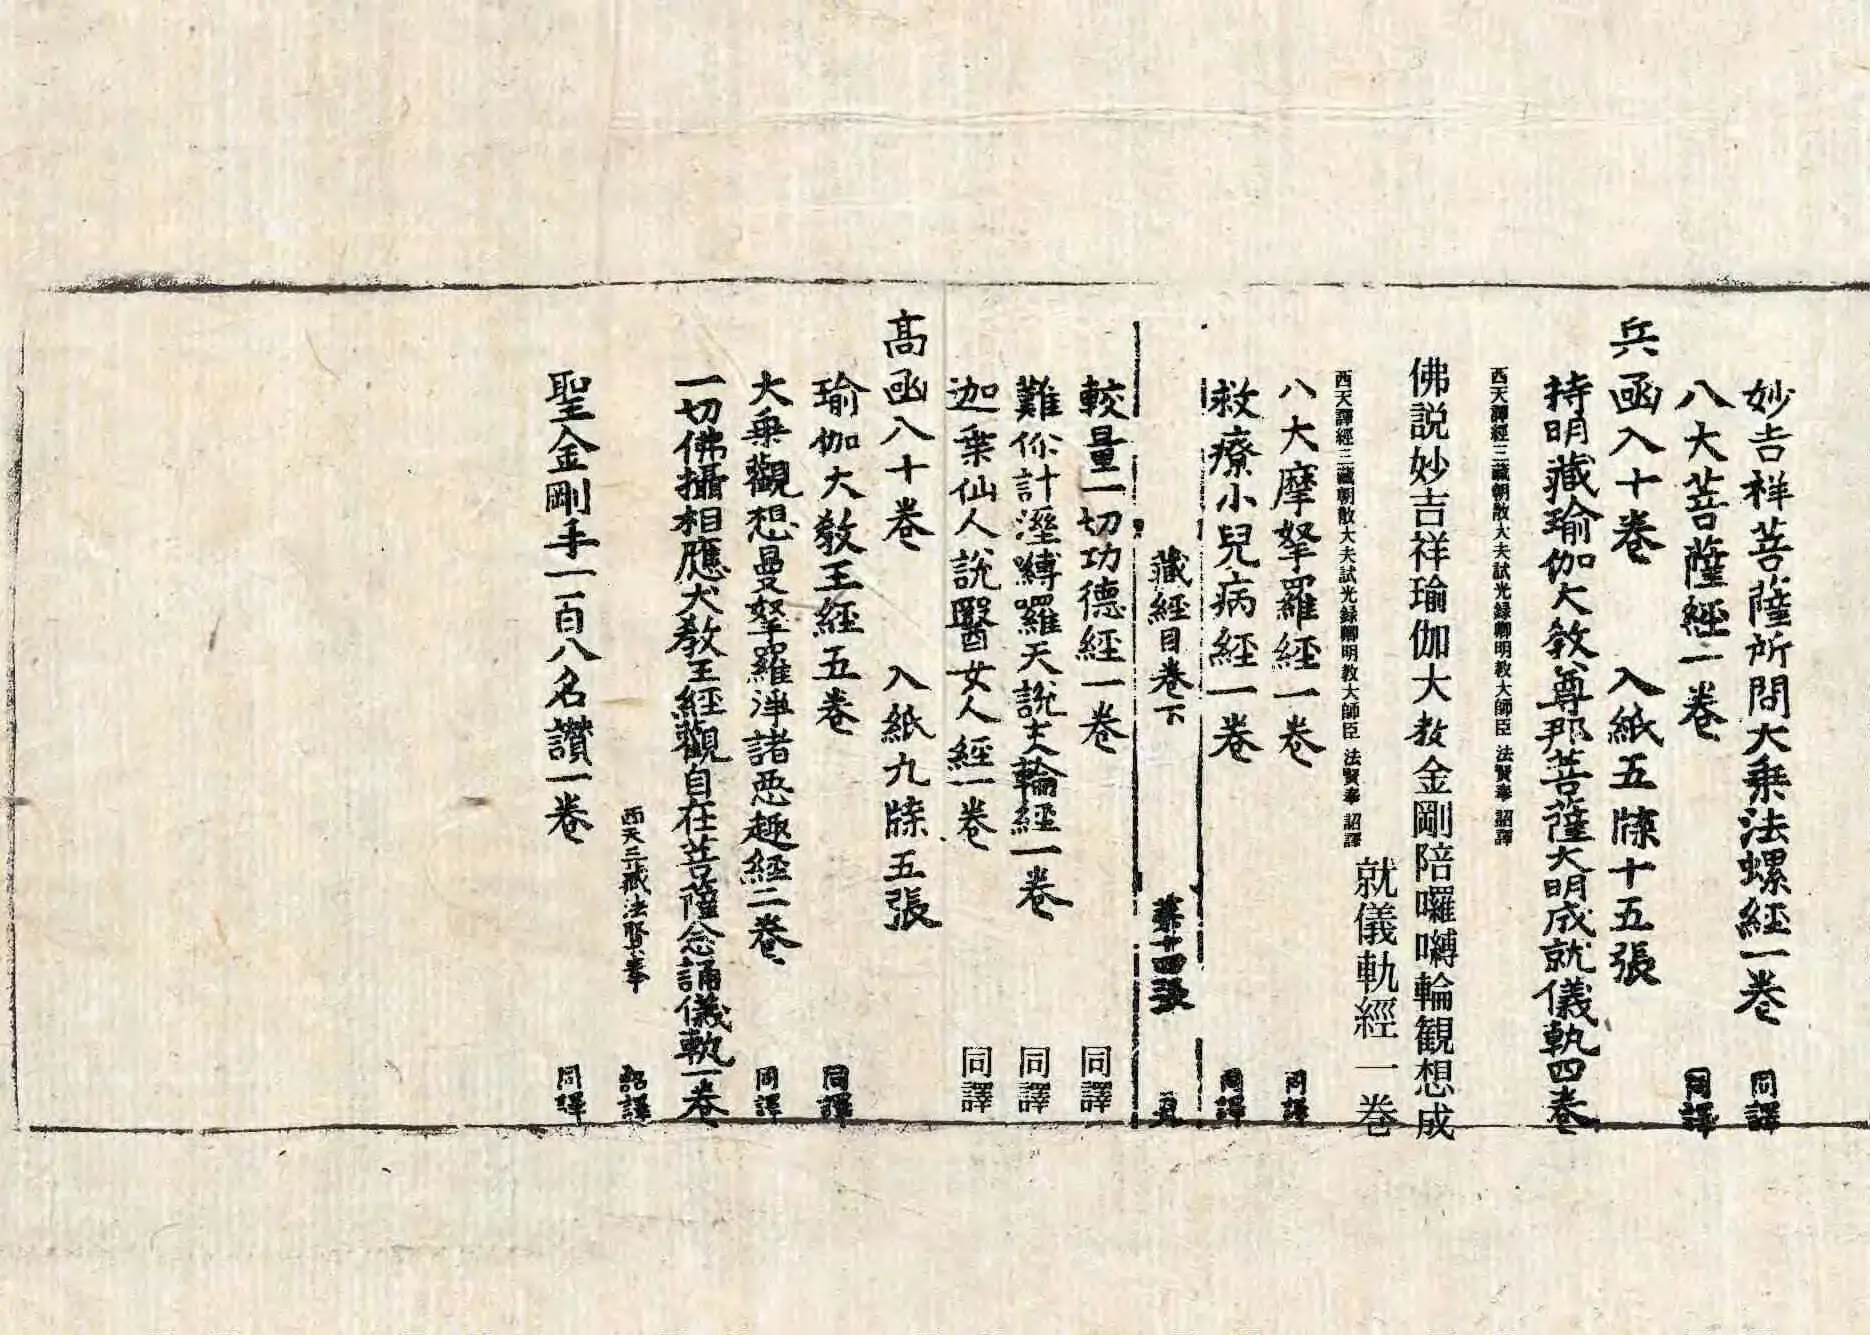 妙吉祥菩薩所問大乗法螺經一卷 同譯
八大菩薩經一卷 同譯
兵函入十卷 入紙五牒十五張
持明藏瑜伽大教尊那菩薩大明成就儀軌四卷
西天譯經三藏朝散大夫試光録卿明教大師臣 法賢奉 詔譯
佛説妙吉祥瑜伽大教金剛陪囉嚩輪観想成
就儀軌經一巻
西天譯經三藏朝散大夫試光録卿明教大師臣 法賢奉 詔譯
八大摩拏羅經一卷 同譯
救療小兒病經一卷 同譯
藏經目卷下 廿四張
較量一切功德經一卷 同譯
難你計溼嚩囉天說支輪經一卷 同譯
迦葉仙人說醫女人經一卷 同譯
髙函八十卷 入紙九牒五張
瑜伽大教王經五卷 同譯
大乗觀想曼拏羅淨諸惡趣經二卷 同譯
一切佛攝相應大教王經觀自在菩薩念誦儀軌一卷
西天三藏法賢奉 詔譯
聖金剛手一百八名讃一卷 同譯